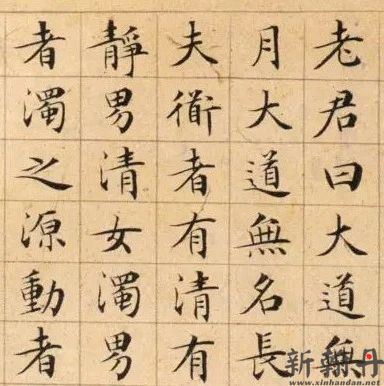 老君曰大道無
月大道無名長
夫衜者有清有
靜男清女濁男
者濁之源動者
新翰丹
www.xinhandan.net